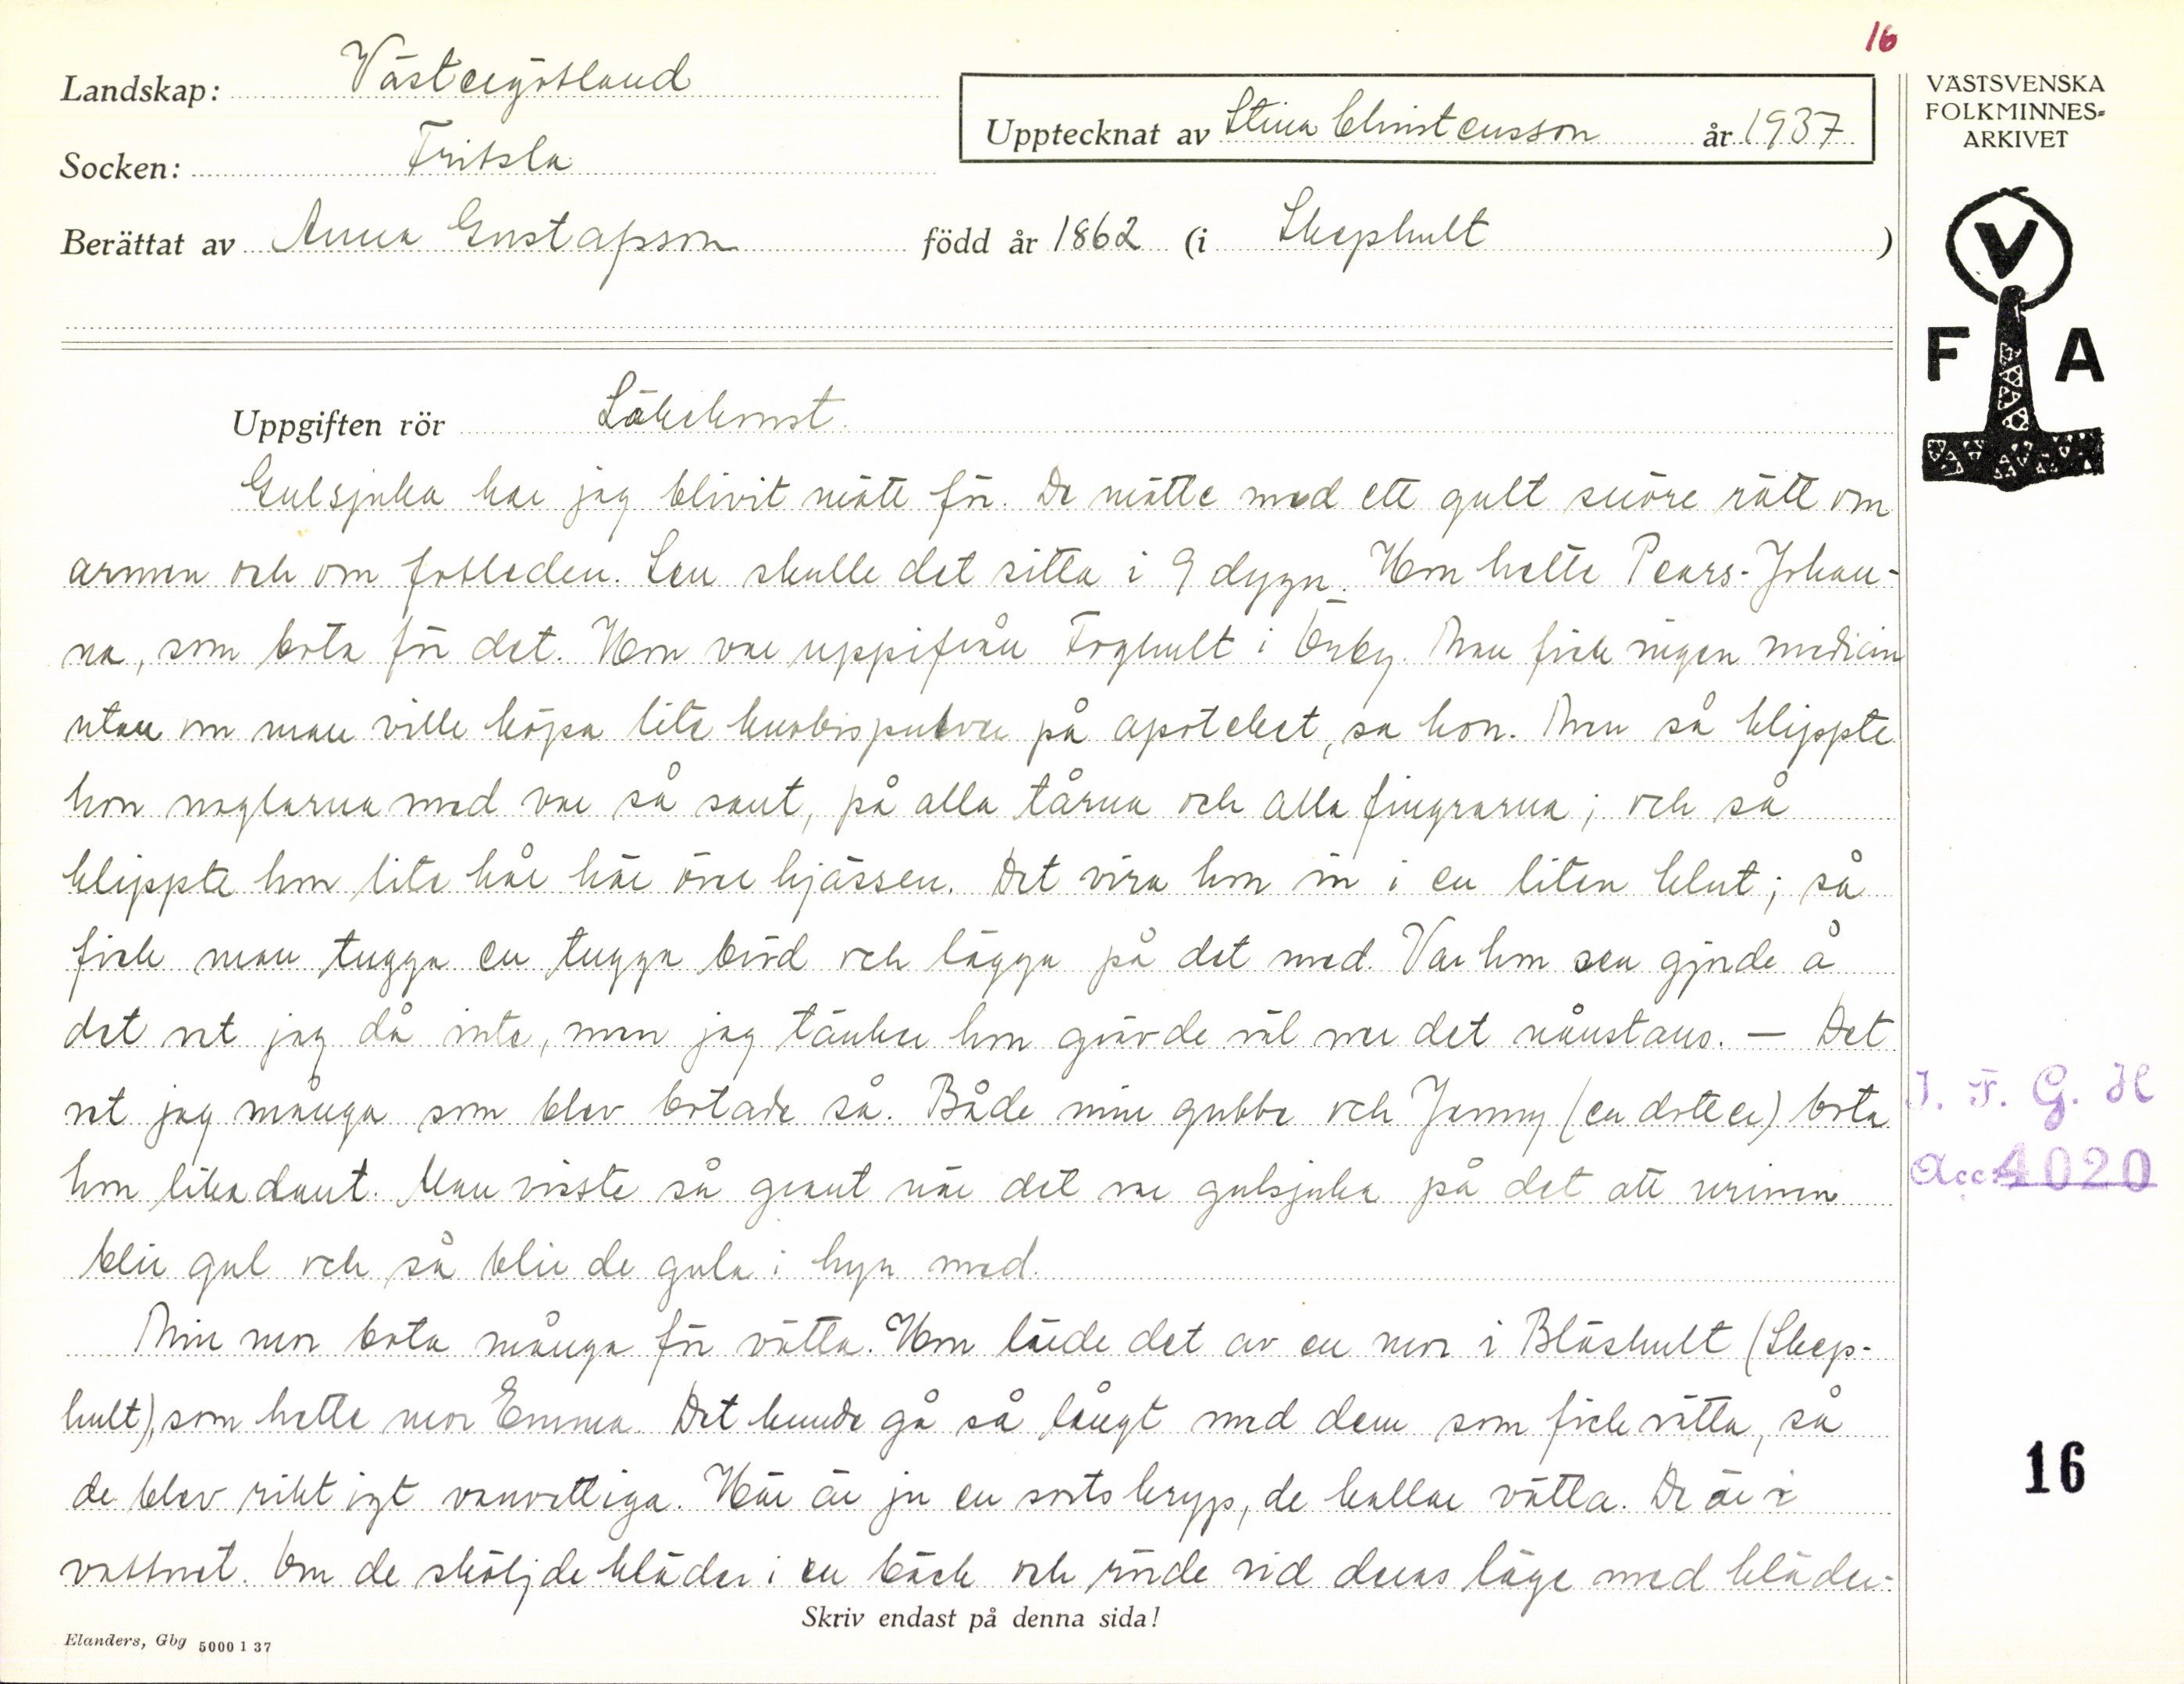 16
Landskap: Västergötland
Upptecknat av Stina Christensson år 1937
VÄSTSVENSKA
FOLKMINNES=
ARKIVET
Socken: Fritsla
Berättat av Anna Gustafsson född år 1862 (i Skephult)
V
F A
Uppgiften rör Läkekonst.
Gulsjuka har jag blivit mätt för. De mätte med ett gult snöre rätt om
armen och om fotleden. Sen skulle det sitta i 9 dygn. Hon hette Pears-Johan-
na, som bota för det. Hon var uppifrån Foghult i Örby. Man fick ingen medicin
utan om man ville köpa lite knobispulver på apoteket, sa hon. Men så klippte
hon naglarna med var så sant, på alla tårna och alla fingrarna; och så
klippte hon lite hår här över hjässen. Det vira hon in i en liten klut; så
fick man tugga en tugga bröd och lägga på det med. Var hon sen gjorde å
det vet jag då inte, men jag tänker hon grävde väl ner det nånstans. — Det
vet jag många som blev botade så. Både min gubbe och Jenny (en dotter) bota
hon likadant. Man visste så grant när det var gulsjuka på det att urinen
blir gul och så blir de gula i hyn med.
Min mor bota många för vätta. Hon lärde det av en mor i Bläshult (Skep-
hult), som hette mor Emma. Det kunde gå så långt med dem som fick vätta, så
de blev riktigt vanvettiga. Här är ju en sorts kryp, de kallar vätta. De är i
vattnet. Om de sköljde kläder i en bäck och rörde vid deras läge med kläder-
I. F. G. H
Acc 4020
16
Skriv endast på denna sida!
Elanders, Gbg 5000 1 37